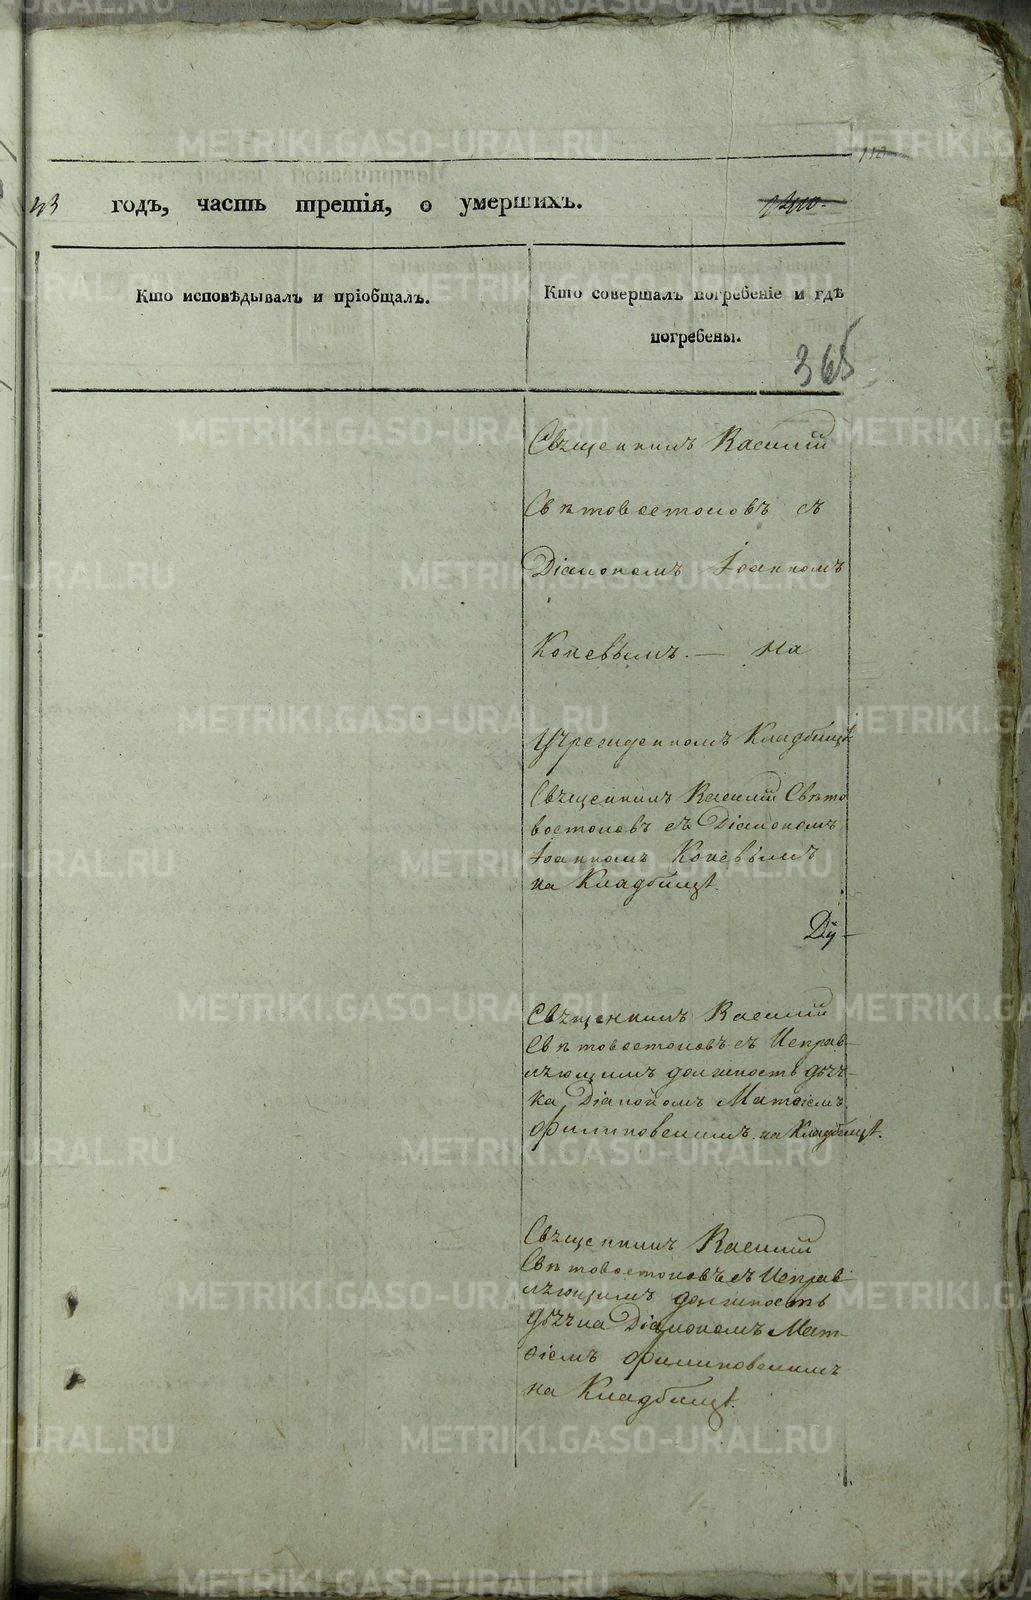 110
43 годъ, часть третія, о умершихъ.
Кто исповѣдывалъ и пріобщалъ.
Кто совершалъ погребеніе и гдѣ
погребены.
365
Священникъ Василій
Свѣтовостоковъ съ
Діакономъ Іоанномъ
Коневымъ. — На
Учрежденномъ Кладбищѣ
Священникъ Василій Свѣто
востоковъ съ Діакономъ
Іоанномъ Коневымъ
на Кладбищѣ.
Ду-
Священникъ Василій
Свѣтовостоковъ съ Исправ-
ляющимъ должность дьяч-
ка Діакономъ Матѳіемъ
Филиповскимъ на Кладбищѣ.
Священникъ Василій
Свѣтовостоковъ съ Исправ
ляющимъ должность
дьячка Діакономъ Мат-
ѳіемъ Филиповскимъ
на Кладбищѣ.
METRIKI.GASO-URAL.RU